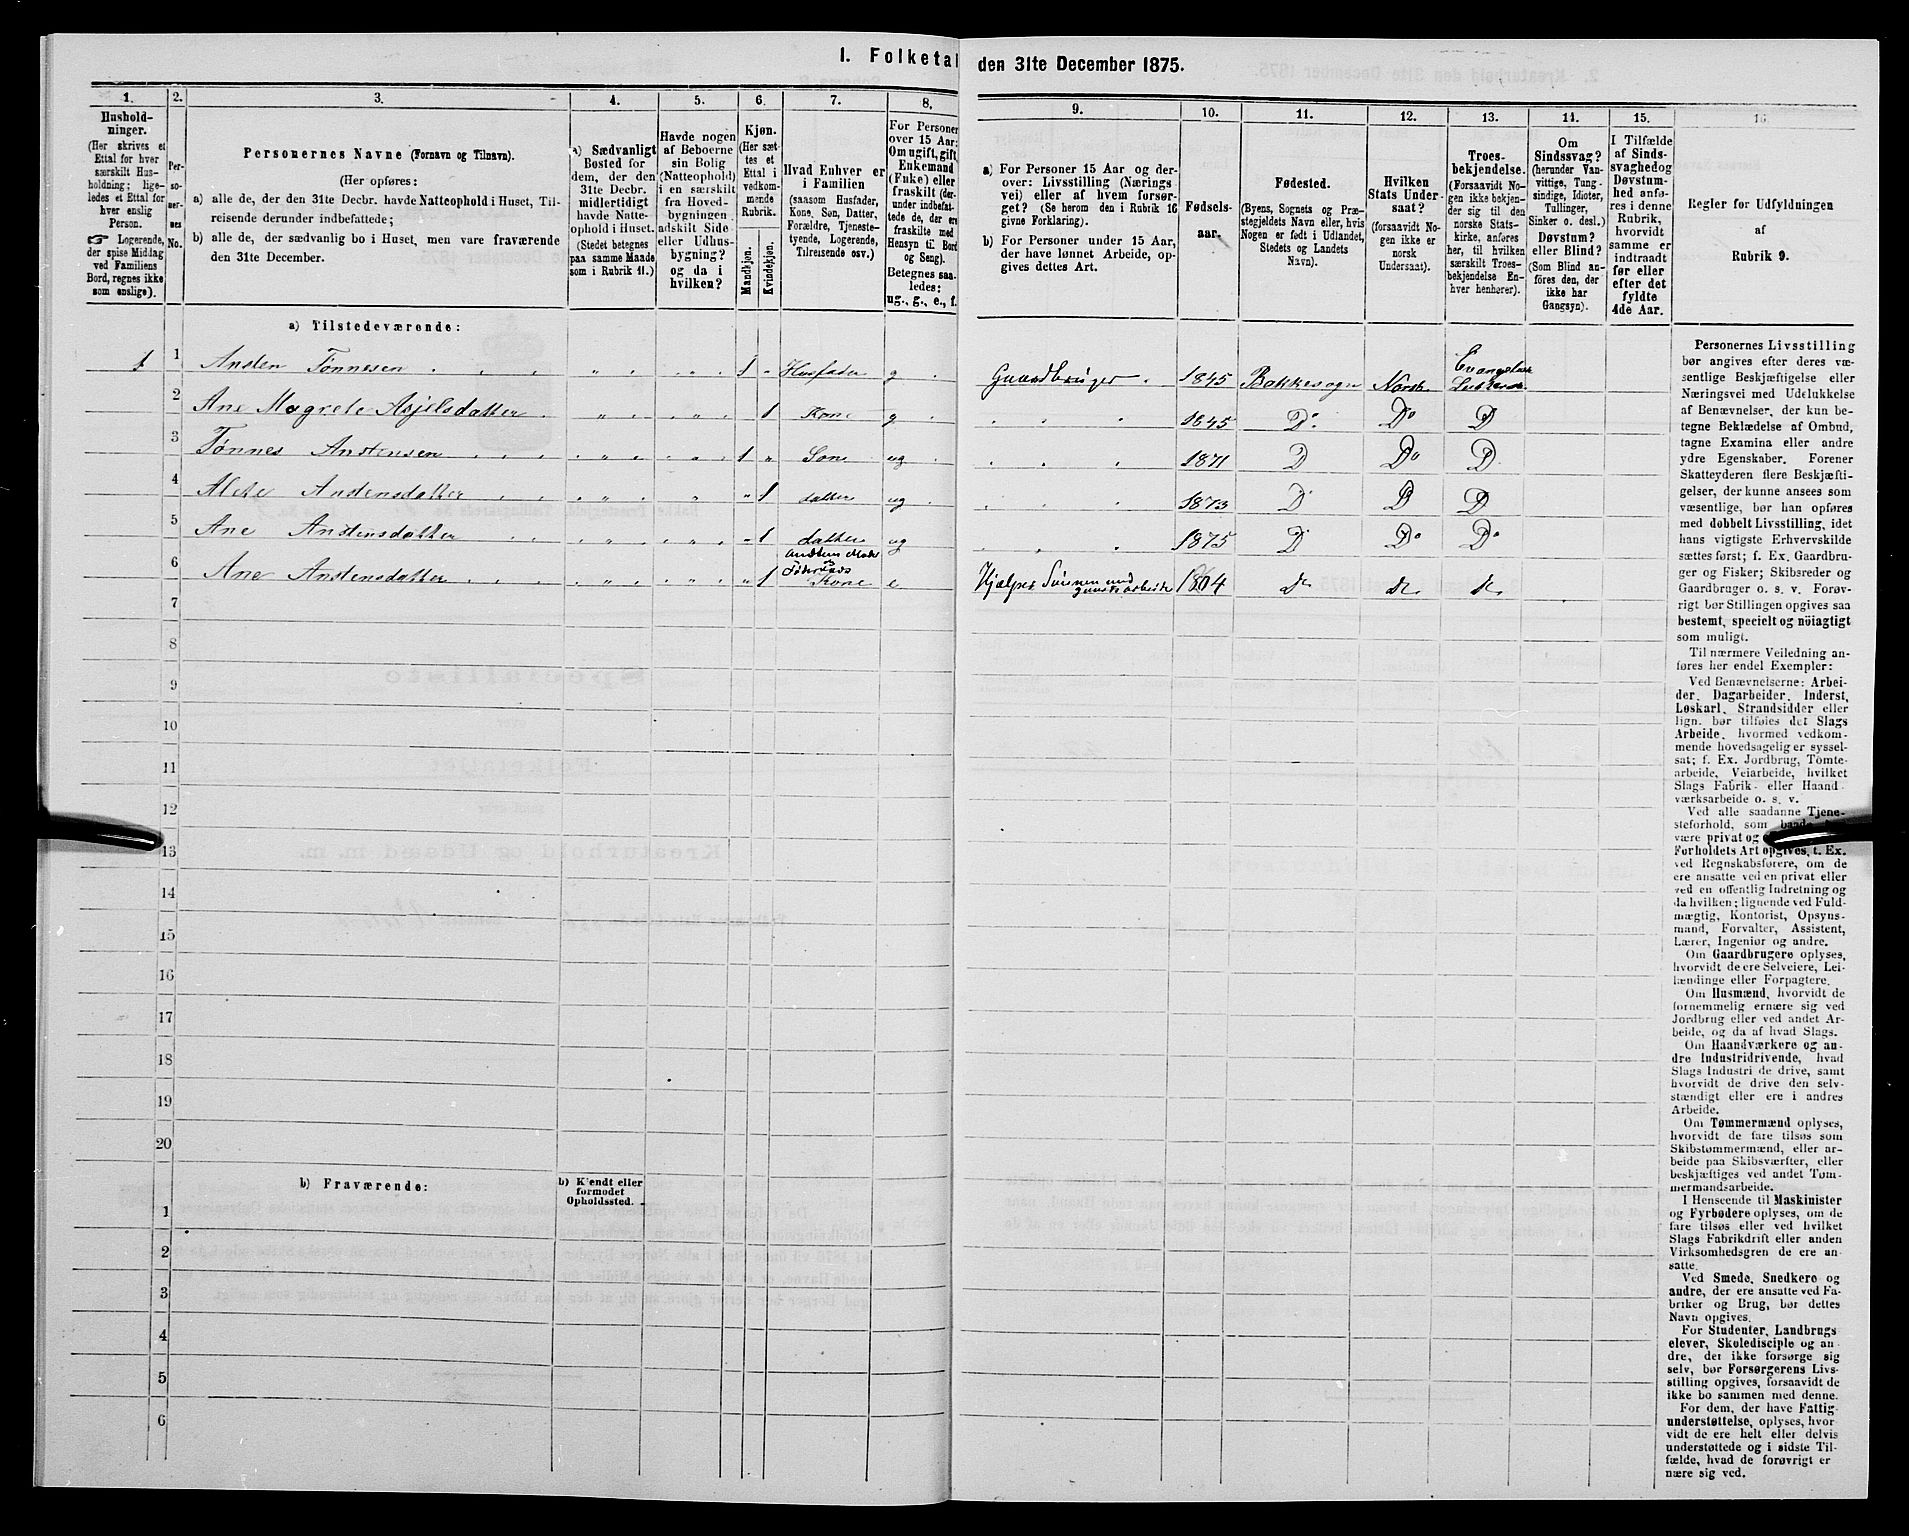 I. Folketal den 31te December 1875.
1.
Hushold-
ninger.
(Her skrives et
Ettal for hver
særskilt Hus-
holdning; lige-
ledes et Ettal for
hver enslig
Person.
☞ Logerende,
der spise Middag
ved Familiens
Bord, regnes ikke
som enslige).
2.
Per-
so-
ner-
nes
No.
3.
Personernes Navne (Fornavn og Tilnavn).
(Her opføres:
a) alle de, der den 31te Decbr. havde Natteophold i Huset, Til-
reisende derunder indbefattede;
b) alle de, der sædvanlig bo i Huset, men vare fraværende
den 31te December.
4.
a) Sædvanligt
Bosted for
dem, der den
31te Decbr.
midlertidigt
havde Natte-
ophold i Huset.
(Stedet betegnes
paa samme Maade
som i Rubrik 11.)
5.
Havde nogen
af Beboerne
sin Bolig
(Natteophold)
i en særskilt
fra Hoved-
bygningen
adskilt Side
eller Udhus-
bygning?
og da i
hvilken?
6.
Kjøn.
(Her sæt-
tes et
Ettal i
vedkom-
mende
Rubrik.
Mandkjøn.
Kvindekjøn.
7.
Hvad Enhver er
i Familien
(saasom Husfader,
Kone, Søn, Datter,
Forældre, Tjeneste-
tyende, Logerende,
Tilreisende osv.)
8.
For Personer
over 15 Aar:
Om ugift, gift,
Enkemand
(Enke) eller
fraskilt (der-
under indbefat-
tede de, der ere
fraskilte med
Hensyn til Bord
og Seng).
Betegnes saa-
ledes:
ug., g., e., f.
9.
a) For Personer 15 Aar og der-
over: Livsstilling (Nærings
vei) eller af hvem forsør-
get? (Se herom den i Rubrik 16
givne Forklaring).
b) For Personer under 15 Aar,
der have lønnet Arbeide, op-
gives dettes Art.
10.
Fødsels-
aar.
11.
Fødested.
(Byens, Sognets og Præ-
stegjeldets Navn eller, hvis
Nogen er født i Udlandet,
Stedets og Landets
Navn).
12.
Hvilken
Stats Under-
saat?
(forsaavidt No-
gen ikke er
norsk
Undersaat).
13.
Troes-
bekjendelse.
(Forsaavidt No-
gen ikke bekjen-
der sig til den
norske Stats-
kirke, anføres
her, til hvilken
særskilt Troes-
bekjendelse En-
hver henhører).
14.
Om
Sindssvag?
(herunder Van-
vittige, Tung-
sindige, Idioter,
Tullinger,
Sinker o. desl.)
Døvstum?
eller Blind?
(Som Blind an-
føres den, der
ikke har
Gangsyn).
15.
I Tilfælde
af Sinds-
svaghed og
Døvstum-
hed anfø-
res i denne
Rubrik,
hvorvidt
samme er
indtraadt
før eller
efter det
fyldte
4de Aar.
16.
Regler for Udfyldningen
af
Rubrik 9.
a) Tilstedeværende:
1 1 Ansten Tønnesen 1 Husfader g Gaardbruger 1845 Bakke sogn Norsk Evangelisk Luthersk
2 Ane Magrete Asjelsdatter 1 Kone g 1845 Do Do D
3 Tønnes Anstensen 1 Søn ug 1871 D Do D
4 Alete Anstensdatter 1 datter ug 1873 D D D
5 Ane Anstensdatter 1 datter ug 1875 D Do Do
6 Ane Anstensdatter 1 Kone e Hjælper Sønnen med 1804 Do do do
7
8
9
10
11
12
13
14
15
16
17
18
19
20
b) Fraværende:
b) Kjendt eller
formodet
Opholdssted.
1
2
3
4
5
6
Personernes Livsstilling
bør angives efter deres væ-
sentlige Beskjæftigelse eller
Næringsvei med Udelukkelse
af Benævnelser, der kun be-
tegne Beklædelse af Ombud,
tagne Examina eller andre
ydre Egenskaber. Forener
Skatteyderen flere Beskjæfti-
gelser, der kunne ansees som
væsentlige, bør han opføres
med dobbelt Livsstilling, idet
hans vigtigste Erhvervskilde
sættes først; f. Ex. Gaardbru-
ger og Fisker; Skibsreder og
Gaardbruger o. s. v. Forøv-
rigt bør Stillingen opgives saa
bestemt, specielt og nöiagtigt
som muligt.
Til nærmere Veiledning an-
føres her endel Exempler:
Ved Benævnelserne: Arbei-
der, Dagarbeider, Inderst,
Løskarl, Strandsidder eller
lign. bør tilføies det Slags
Arbeide, hvormed vedkom-
mende hovedsagelig er syssel-
sat; f. Ex. Jordbrug, Tömte-
arbeide, Veiarbeide, hvilket
Slags Fabrik- eller Haand-
værksarbeide o. s. v.
Ved alle saadanne Tjene-
steforhold, som baade
være privat og
Forholdets Art opgives, f. Ex.
ved Regnskabsførere, om de
ere ansatte ved en privat eller
ved en offentlig Indretning og
da hvilken; lignende ved Fuld-
mægtig, Kontorist, Opsyns-
mand, Forvalter, Assistent,
Lærer, Ingeniør og andre.
Om Gaardbrugere oplyses,
hvorvidt de ere Selveiere, Lei-
lændinge eller Forpagtere.
Om Husmænd, hvorvidt de
fornemmelig ernære sig ved
Jordbrug eller ved andet Ar-
beide, og da af hvad Slags.
Om Haandværkere og an-
dre Industridrivende, hvad
Slags Industri de drive, samt
hvorvidt de drive den selv-
stændigt eller ere i andres
Arbeide.
Om Tømmermænd oplyses,
hvorvidt de fare tilsøs som
Skibstømmermænd, eller ar-
beide paa Skibsværfter, eller
beskjæftiges ved andet Töm-
mermandsarbeide.
I Henseende til Maskinister
og Fyrbødere oplyses, om de
fare tilsøs eller ved hvilket
Slags Fabrikdrift eller anden
Virksomhedsgren de ere an-
satte.
Ved Smede, Snedkere og
andre, der ere ansatte ved Fa-
briker og Brug, bør dettes
Navn opgives.
For Studenter, Landbrugs
elever, Skoledisciple og an-
dre, der ikke forsørge sig
selv, bør Forsørgerens Livs-
stilling opgives, forsaavidt de
ikke bo sammen med denne.
For dem, der have Fattig-
understøttelse, oplyses, hvor-
vidt de ere helt eller delvis
understøttede og i sidste Til-
fælde, hvad de forøvrigt er-
nære sig ved.